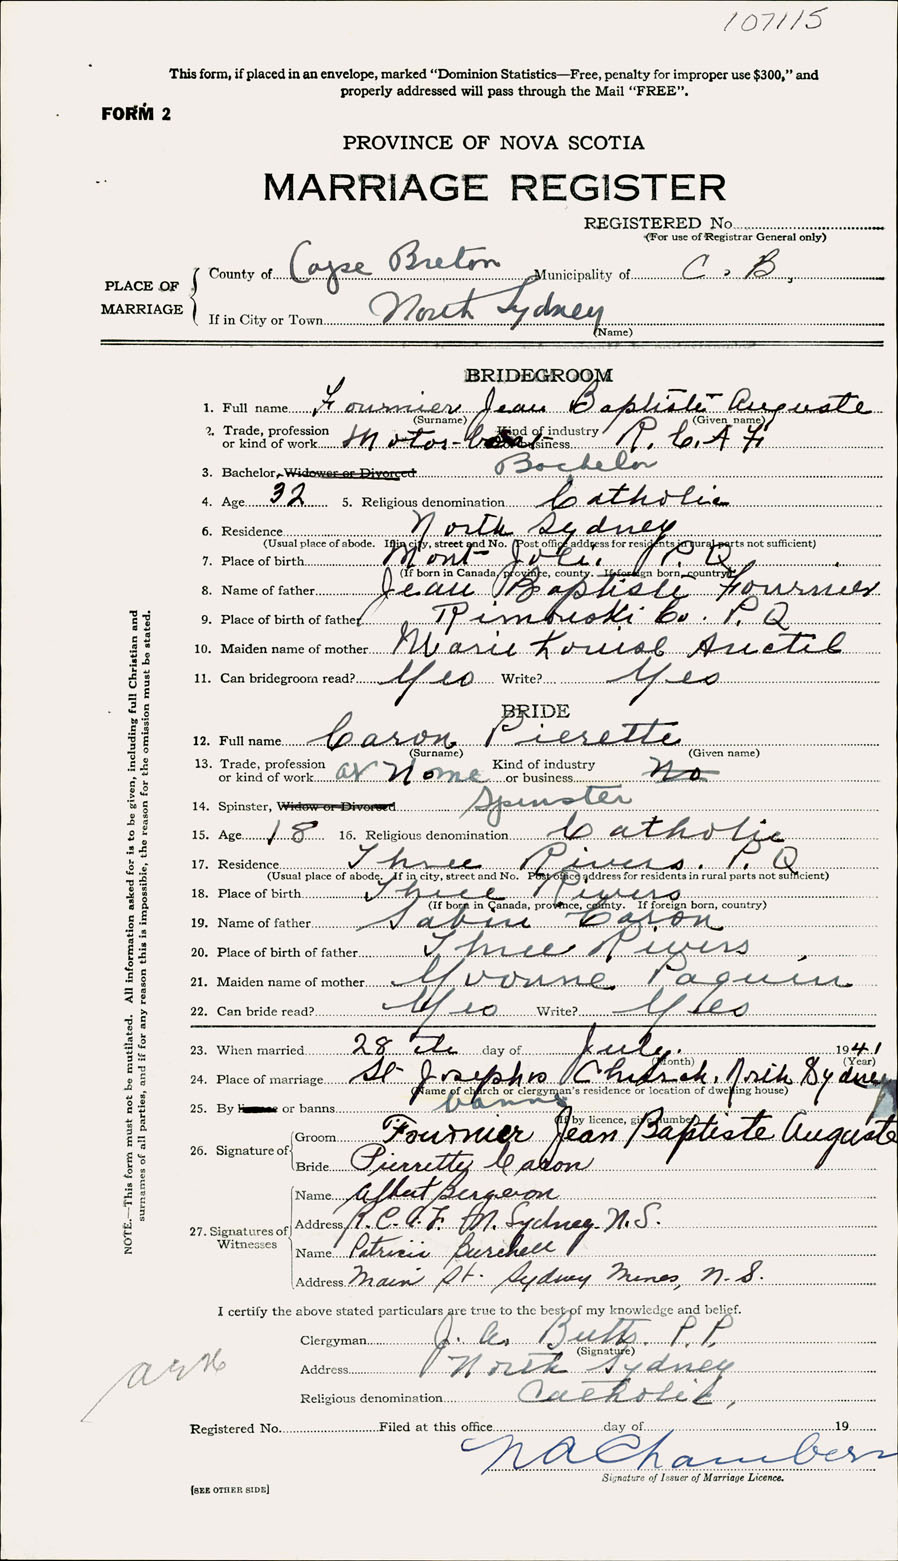 107115
This form, if placed in an envelope, marked "Dominion Statistics—Free, penalty for improper use $300," and
properly addressed will pass through the Mail "FREE".
FORM 2
PROVINCE OF NOVA SCOTIA
MARRIAGE REGISTER
REGISTERED No.
(For use of Registrar General only)
PLACE OF MARRIAGE
County of Cape Breton Municipality of C. B.
If in City or Town North Sydney
(Name)
BRIDEGROOM
1. Full name Fournier Jean Baptiste Auguste
(Surname) (Given name)
2. Trade, profession or kind of work Motor-boat Kind of industry or business R.C.A.F.
3. Bachelor, Widower or Divorced Bachelor
4. Age 32 5. Religious denomination Catholic
6. Residence North Sydney
(Usual place of abode. If in city, street and No. Post office address for residents in rural parts not sufficient)
7. Place of birth Mont Joli, P.Q.
(If born in Canada, province, county. If foreign born, country)
8. Name of father Jean Baptiste Fournier
9. Place of birth of father Rimouski Co. P.Q
10. Maiden name of mother Marie Louise Anctil
11. Can bridegroom read? Yes Write? Yes
BRIDE
12. Full name Caron Pierette
(Surname) (Given name)
13. Trade, profession or kind of work at Home Kind of industry or business No
14. Spinster, Widow or Divorced Spinster
15. Age 18 16. Religious denomination Catholic
17. Residence Three Rivers. P.Q
(Usual place of abode. If in city, street and No. Post office address for residents in rural parts not sufficient)
18. Place of birth Three Rivers
(If born in Canada, province, county. If foreign born, country)
19. Name of father Sabin Caron
20. Place of birth of father Three Rivers
21. Maiden name of mother Yvonne Paquin
22. Can bride read? Yes Write? Yes
23. When married 28th day of July. 1941
(Month) (Year)
24. Place of marriage St Josephs Church, North Sydney
(Name of church or clergyman's residence or location of dwelling house)
25. By license or banns banns
(If by licence, give number)
26. Signature of Groom Fournier Jean Baptiste Auguste
Bride Pierrette Caron
27. Signatures of Witnesses
Name Albert Bergeron
Address R.C.A.F. N. Sydney. N.S.
Name Patricia Burchell
Address Main St. Sydney Mines, N.S.
I certify the above stated particulars are true to the best of my knowledge and belief.
Clergyman J. A. Butts. P.P.
(Signature)
Address North Sydney
Religious denomination Catholic,
Registered No. Filed at this office day of 19
N A Chambers
Signature of Issuer of Marriage Licence.
[SEE OTHER SIDE]
NOTE.—This form must not be mutilated. All information asked for is to be given, including full Christian and
surnames of all parties, and if for any reason this is impossible, the reason for the omission must be stated.